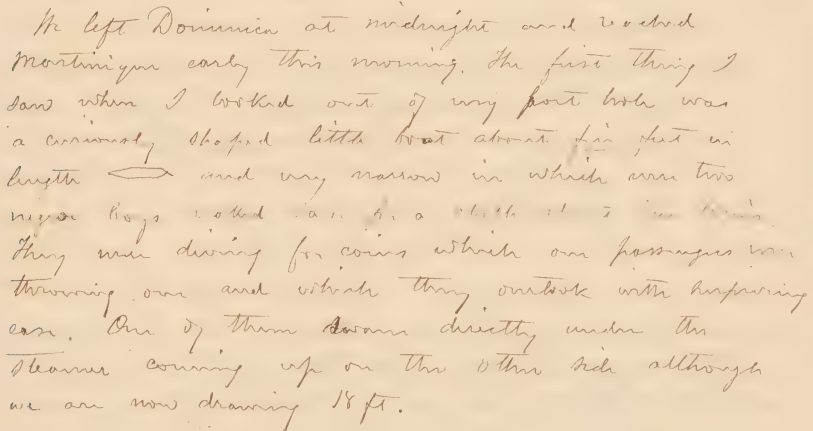 We left Dominica at midnight and reached
Martinique early this morning. The first thing I
saw when I looked out of my port hole was
a curiously shaped little boat about feet in
length and very narrow in which were two
negro boys naked a cloth
They were diving for coins which our passengers were
throwing over and which they overtook with surprising
ease. One of them swam directly under the
steamer coming up on the other side although
we are now drawing 18 ft.